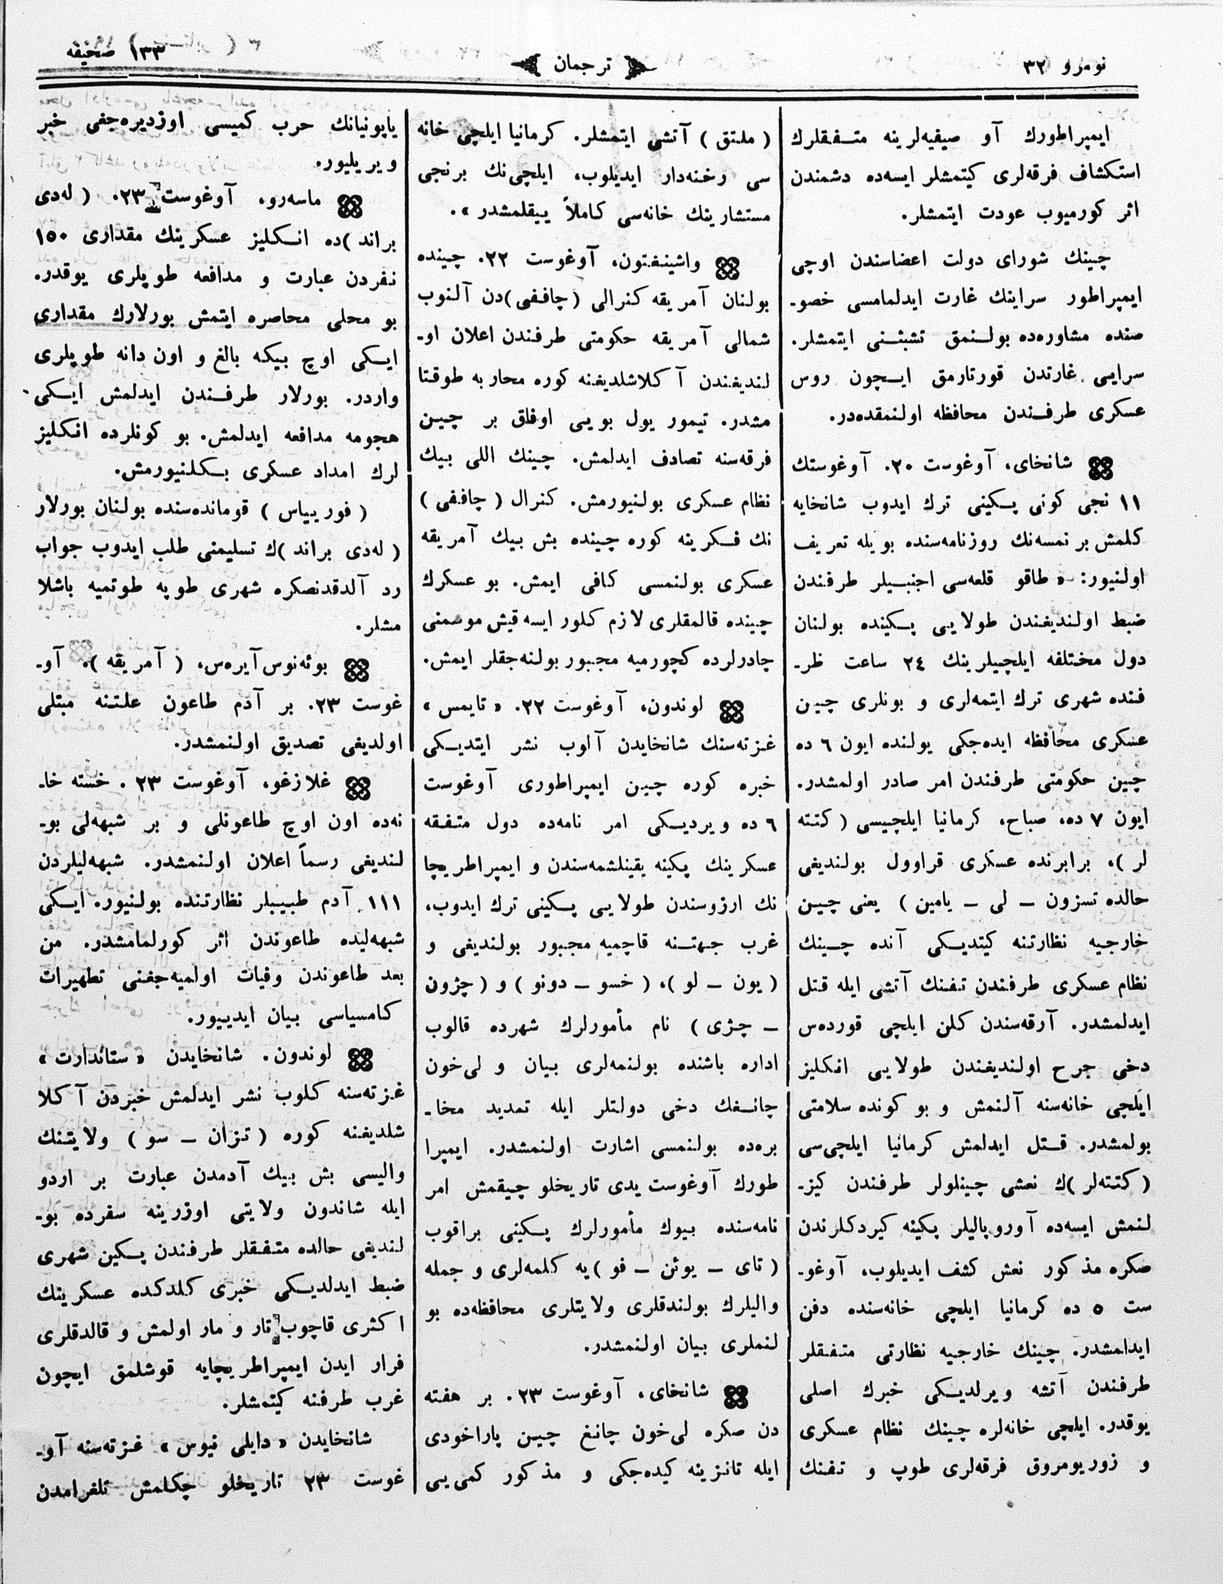 نومرو ٣٢
ترجمان
١٣٣ صحيفه
ايمپراطورك آو صيفيه‌لرينه متفقلرك
استكشاف فرقه‌لری كيتمشلر ايسه‌ده دشمندن
اثر كورميوب عودت ايتمشلر.
چينك شورای دولت اعضاسندن اوچی
ايمپراطور سراينك غارت ايدلمامسی خصو-
صنده مشاوره‌ده بولنمق تشبثنی ايتمشلر.
سرايی غارتدن قورتارمق ايچون روس
عسكری طرفندن محافظه اولنمقده‌در.
شانخای، آوغوست ٢٠. آوغوستك
١١ نجی كونی پكينی ترك ايدوب شانخايه
كلمش بر نمسه‌نك روزنامه‌سنده بويله تعريف
اولنيور: «طاقو قلعه‌سی اجنبيلر طرفندن
ضبط اولنديغندن طولايی پكينده بولنان
دول مختلفه ايلچيلرينك ٢٤ ساعت ظر-
فنده شهری ترك ايتمه‌لری و بونلری چين
عسكری محافظه ايده‌جكی يولنده ايون ٦ ده
چين حكومتی طرفندن امر صادر اولمشدر.
ايون ٧ ده، صباح، كرمانيا ايلچيسی (كتته
لر)، برابرنده عسكری قراوول بولنديغی
حالده تسزون – لی – يامين) يعنی چين
خارجيه نظارتنه كيتديكی آنده چينك
نظام عسكری طرفندن تفنك آتشی ايله قتل
ايدلمشدر. آرقه‌سندن كلن ايلچی قورده‌س
دخی جرح اولنديغندن طولايی انكليز
ايلچی خانه‌سنه آلنمش و بو كونده سلامتی
بولمشدر. قتل ايدلمش كرمانيا ايلچی‌سی
(كتته‌لر)ك نعشی چينلولر طرفندن كيز-
لنمش ايسه‌ده آوروپاليلر پكينه كيردكلرندن
صكره مذكور نعش كشف ايديلوب، آوغو-
ست ٥ ده كرمانيا ايلچی خانه‌سنده دفن
ايدلمشدر. چينك خارجيه نظارتی متفقلر
طرفندن آتشه ويرلديكی خبرك اصلی
يوقدر. ايلچی خانه‌لره چينك نظام عسكری
و زوريومروق فرقه‌لری طوپ و تفنك
(ملتق) آتشی ايتمشلر. كرمانيا ايلچی خانه
سی رخنه‌دار ايديلوب، ايلچی‌نك برنجی
مستشارينك خانه‌سی كاملاً ييقلمشدر».
واشينغتون، آوغوست ٢٢. چينده
بولنان آمريقه كنرالی (چاففی)دن آلنوب
شمالی آمريقه حكومتی طرفندن اعلان او-
لنديغندن آكلاشلديغنه كوره محاربه طوقتا
مشدر. تيمور يول بويی اوفاق بر چين
فرقه‌سنه تصادف ايدلمش. چينك اللی بيك
نظام عسكری بولنيورمش. كنرال (چاففی)
نك فكرينه كوره چينده بش بيك آمريقه
عسكری بولنمسی كافی ايمش. بو عسكرك
چينده قالمقلری لازم كلور ايسه قيش موسمنی
چادرلرده كچورميه مجبور بولنه‌جقلر ايمش.
لوندون، آوغوست ٢٢. «تايمس»
غزته‌سنك شانخايدن آلوب نشر ايتديكی
خبره كوره چين ايمپراطوری آوغوست
٦ ده ويرديكی امر نامه‌ده دول متفقه
عسكرينك پكينه يقينلشمه‌سندن و ايمپراطريچا
نك ارزوسندن طولايی پكينی ترك ايدوب،
غرب جهتنه قاچميه مجبور بولنديغی و
(يون – لو)، (خسو – دونو) و (چژون
– چژی) نام مأمورلرك شهرده قالوب
اداره باشنده بولنمه‌لری بيان و لی‌خون
چانغك دخی دولتلر ايله تمديد مخا-
بره‌ده بولنمسی اشارت اولنمشدر. ايمپرا
طورك آوغوست يدی تاريخلو چيقمش امر
نامه‌سنده بيوك مأمورلرك پكينی براقوب
(تای – يوئن – فو)يه كلمه‌لری و جمله
واليلرك بولندقلری ولايتلری محافظه‌ده بو
لنملری بيان اولنمشدر.
شانخای، آوغوست ٢٣. بر هفته
دن صكره لی‌خون چانغ چين پاراخودی
ايله تانزينه كيده‌جكی و مذكور كمی‌يی
ياپونيانك حرب كميسی اوزديره‌جغی خبر
ويريليور.
ماسه‌رو، آوغوست ٢٣. (له‌دی
براند)ده انكليز عسكرينك مقداری ١٥٠
نفردن عبارت و مدافعه طوپلری يوقدر.
بو محلی محاصره ايتمش بورلارك مقداری
ايكی اوچ بيكه بالغ و اون دانه طوپلری
واردر. بورلار طرفندن ايدلمش ايكی
هجومه مدافعه ايدلمش. بو كونلرده انكليز
لرك امداد عسكری بكلنيورمش.
(فوريياس) قومانده‌سنده بولنان بورلار
(له‌دی براند)ك تسليمنی طلب ايدوب جواب
رد آلدقدنصكره شهری طوپه طوتميه باشلا
مشلر.
بوئه‌نوس آيره‌س، (آمريقه). آو-
غوست ٢٣. بر آدم طاعون علتنه مبتلی
اولديغی تصديق اولنمشدر.
غلازغو، آوغوست ٢٣. خسته خا-
نه‌ده اون اوچ طاعونلی و بر شبهه‌لی بو-
لنديغی رسماً اعلان اولنمشدر. شبهه‌ليلردن
١١١ آدم طبيبلر نظارتنده بولنيور. ايكی
شبهه‌ليده طاعوندن اثر كورلمامشدر. من
بعد طاعوندن وفيات اولميه‌جغنی تطهيرات
كامسياسی بيان ايدييور.
لوندون. شانخايدن «ستاندارت»
غزته‌سنه كلوب نشر ايدلمش خبردن آكلا
شلديغنه كوره (تزان – سو) ولايتنك
واليسی بش بيك آدمدن عبارت بر اردو
ايله شاندون ولايتی اوزرينه سفرده بو-
لنديغی حالده متفقلر طرفندن پكين شهری
ضبط ايدلديكی خبری كلدكده عسكرينك
اكثری قاچوب تار و مار اولمش و قالدقلری
فرار ايدن ايمپراطريچايه قوشلمق ايچون
غرب طرفنه كيتمشلر.
شانخايدن «دايلی نيوس» غزته‌سنه آو-
غوست ٢٣ تاريخلو چكلمش تلغرامدن